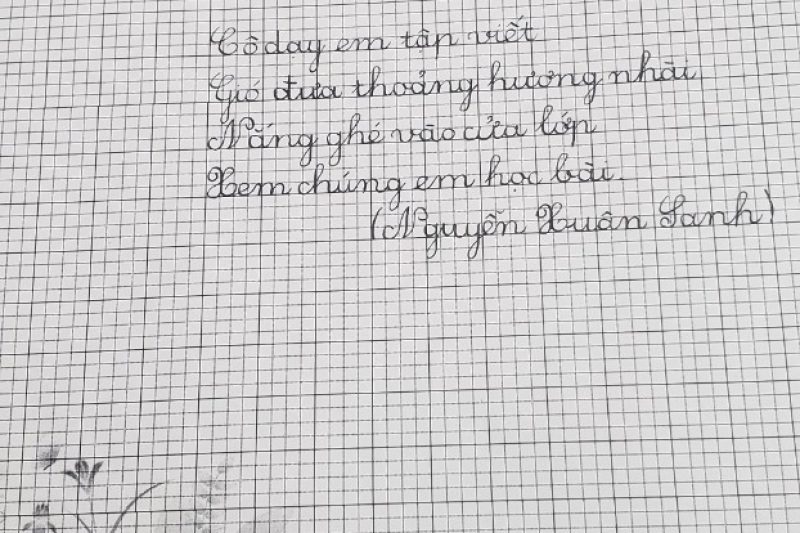 Cô dạy em tập viết
Gió đưa thoảng hương nhài
Nắng ghé vào cửa lớp
Xem chúng em học bài.
(Nguyễn Xuân Sanh)